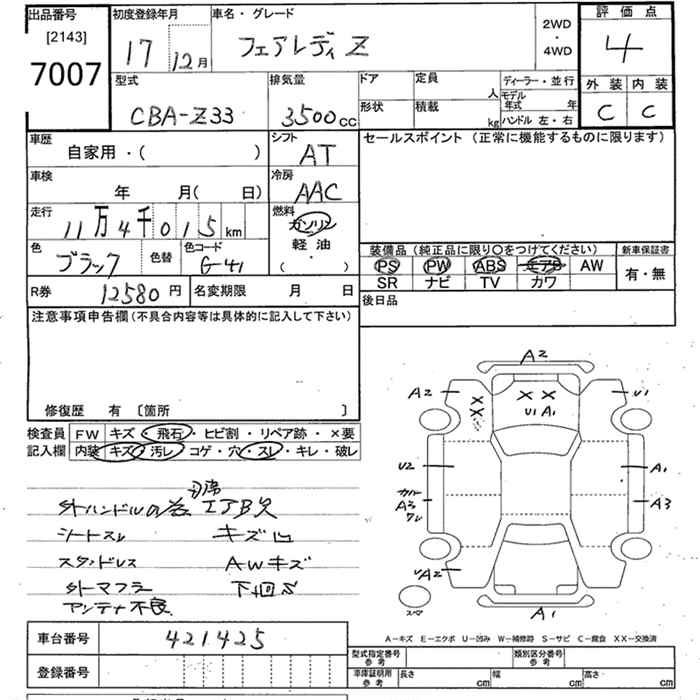 出品番号
[2143]
7007
初度登録年月
17 12月
車名・グレード
フェアレディ Z
2WD
・
4WD
評価点
4
型式
CBA-Z33
排気量
3500cc
ドア
定員
人
形状
積載
kg
ディーラー・並行
モデル年式 年
ハンドル 左・右
外装
C
内装
C
車歴
自家用・( )
シフト
AT
セールスポイント (正常に機能するものに限ります)
車検
年 月( 日)
冷房
AAC
走行
11万4千015km
燃料
ガソリン
軽油
( ・ )
色
ブラック
色替
色コード
G-41
装備品(純正品に限り○をつけてください)
PS PW ABS エアB AW
SR ナビ TV カワ
新車保証書
有・無
R券
12580円
名変期限 月 日
後日品
注意事項申告欄(不具合内容等は具体的に記入して下さい)
修復歴 有 〔箇所 〕
検査員記入欄
FW キズ・飛石・ヒビ割・リペア跡・×要
内装 キズ・汚レ・コゲ・穴・スレ・キレ・破レ
外ハンドル
エアB欠
シートスレ
キズ凹
スタンドレス
AWキズ
外マフラー
下回S
アンテナ不良
A2
A2
U1
X X
X X
U1 A1
U2
A1
カバー
A3
ワレ
A3
UA2
スペア
A1
A-キズ E-エクボ U-凹み W-補修跡 S-サビ C-腐食 XX-交換済
車台番号
421425
登録番号
型式指定番号
参考
類別区分番号
参考
車庫証明用
参考
長さ cm
幅 cm
高さ cm